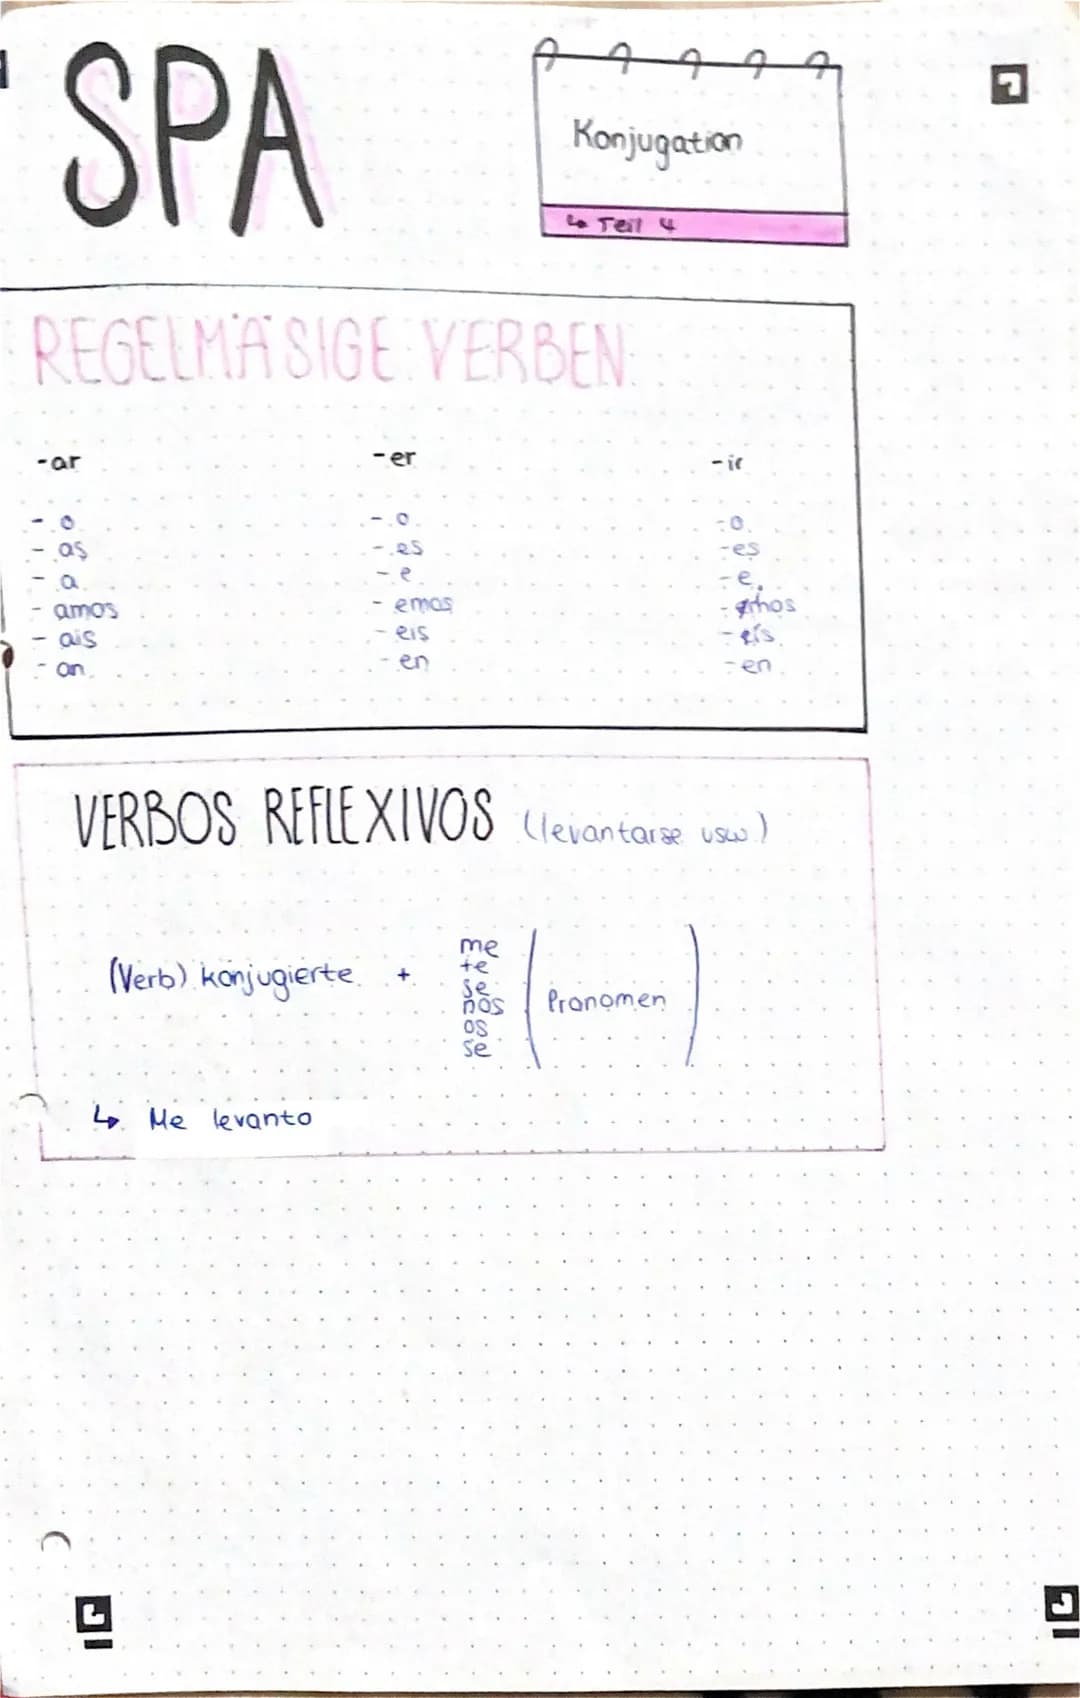 SPA
Konjugation
↳ Teil 4
REGELMÄSIGE VERBEN
-ar -er -ir
- o - o -o
- as - es -es
- a - e -e
- amos - emos
- ais - eis
- an - en -en
VERBOS REFLEXIVOS (levantarse usw.)
(Verb) konjugierte + me te se nos os se (Pronomen)
↳ Me levanto